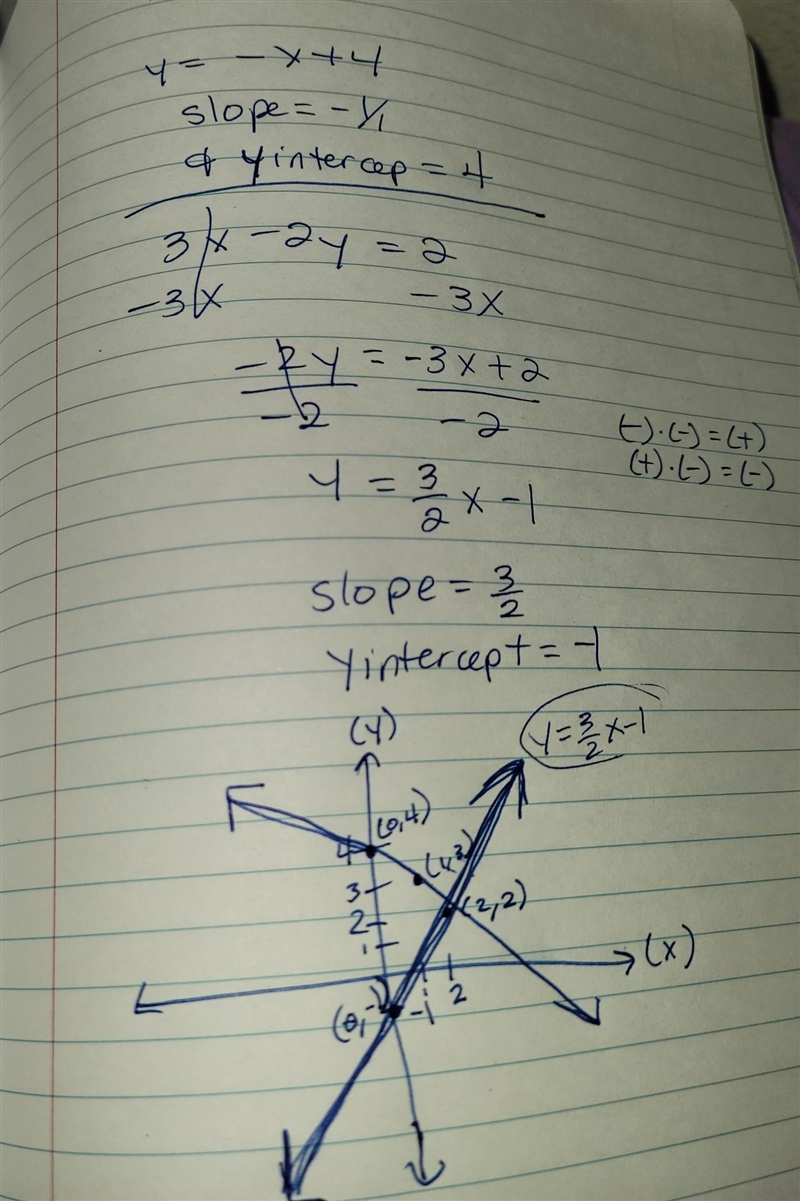 y = -x+4
slope = -1/1
& yintercep = 4
3x - 2y = 2
-3x -3x
-2y = -3x+2
-2 -2
(-)·(-)=(+)
(+)·(-)=(-)
y = 3/2 x - 1
slope = 3/2
yintercept = -1
(y)
y = 3/2 x - 1
(0,4)
4
3
(2,2)
2
1
(x)
1
2
-1